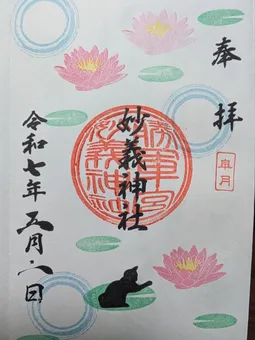 奉拝
皐月
妙義神社
令和七年五月六日